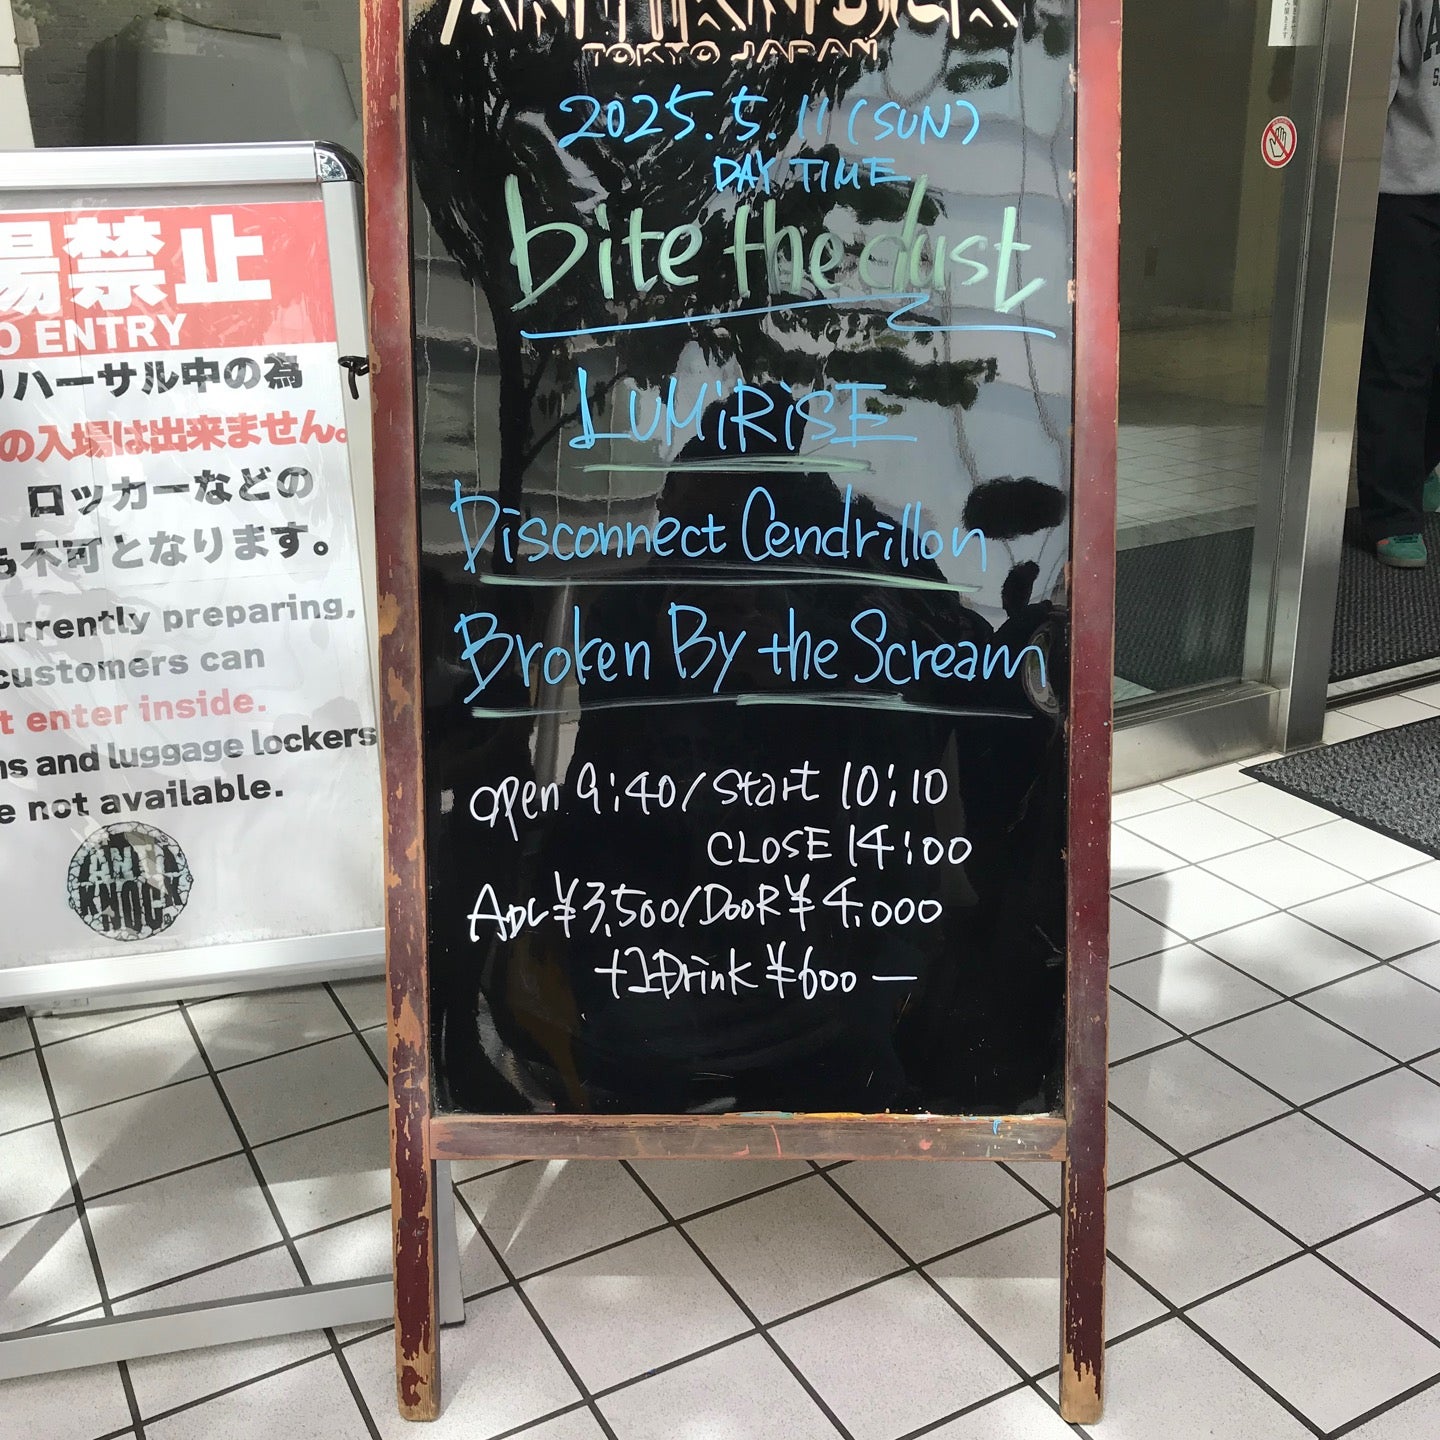 場禁止
O ENTRY
リハーサル中の為
の入場は出来ません。
ロッカーなどの
も不可となります。
urrently preparing,
customers can
t enter inside.
ns and luggage lockers
e not available.
ANTI
KNOCK
ANTIKNOCK
TOKYO JAPAN
2025.5.11(SUN)
DAY TIME
bite the dust
LUMiRiSE
Disconnect Cendrillon
Broken By the Scream
open 9:40/start 10:10
CLOSE 14:00
ADV ¥3,500/DOOR ¥4,000
+1Drink ¥600 —